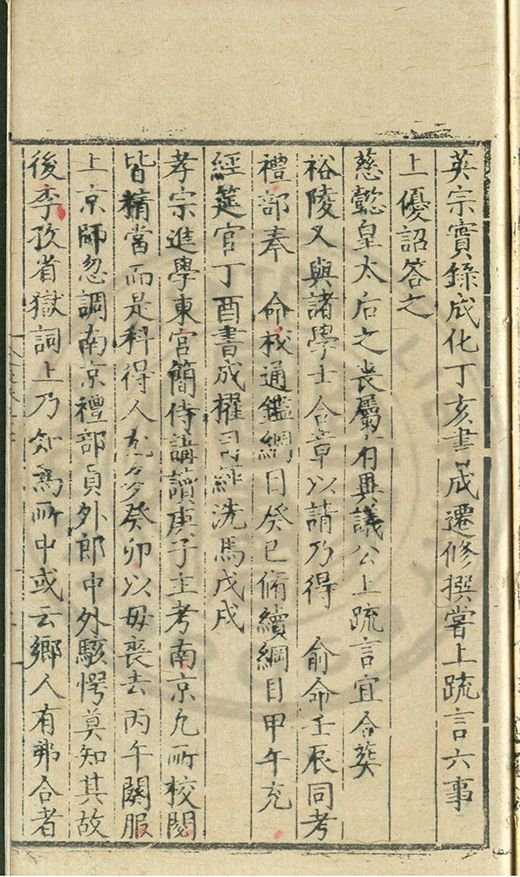 英宗實錄成化丁亥書成遷修撰嘗上疏言六事
上優詔答之
慈懿皇太后之喪屬有異議公上疏言宜合葬
裕陵又與諸學士合章以請乃得 俞命壬辰同考
禮部奉 命校通鑑綱目癸巳脩續綱目甲午充
經筵官丁酉書成擢司經洗馬戊戌
孝宗進學東宮簡侍講讀庚子主考南京凡所校閱
皆精當而是科得人尤多癸卯以母喪去丙午闋服
上京師忽調南京禮部員外郎中外駭愕莫知其故
後李孜省獄詞上乃知為所中或云鄉人有弗合者